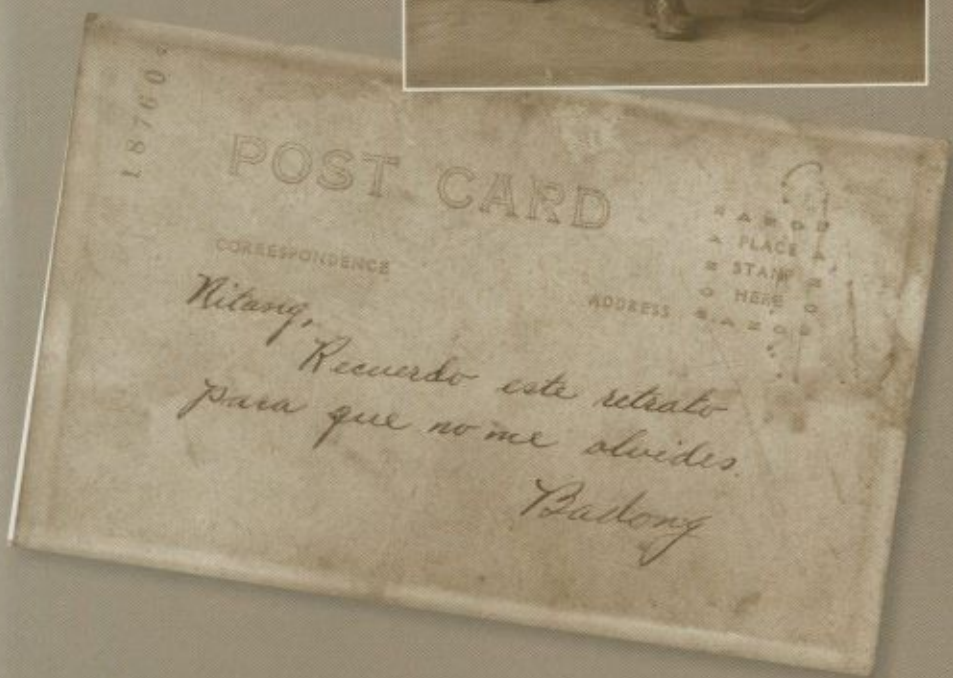 POST CARD
CORRESPONDENCE
ADDRESS
PLACE
STAMP
HERE
Nitang,
Recuerdo este retrato
para que no me olvides.
Badong